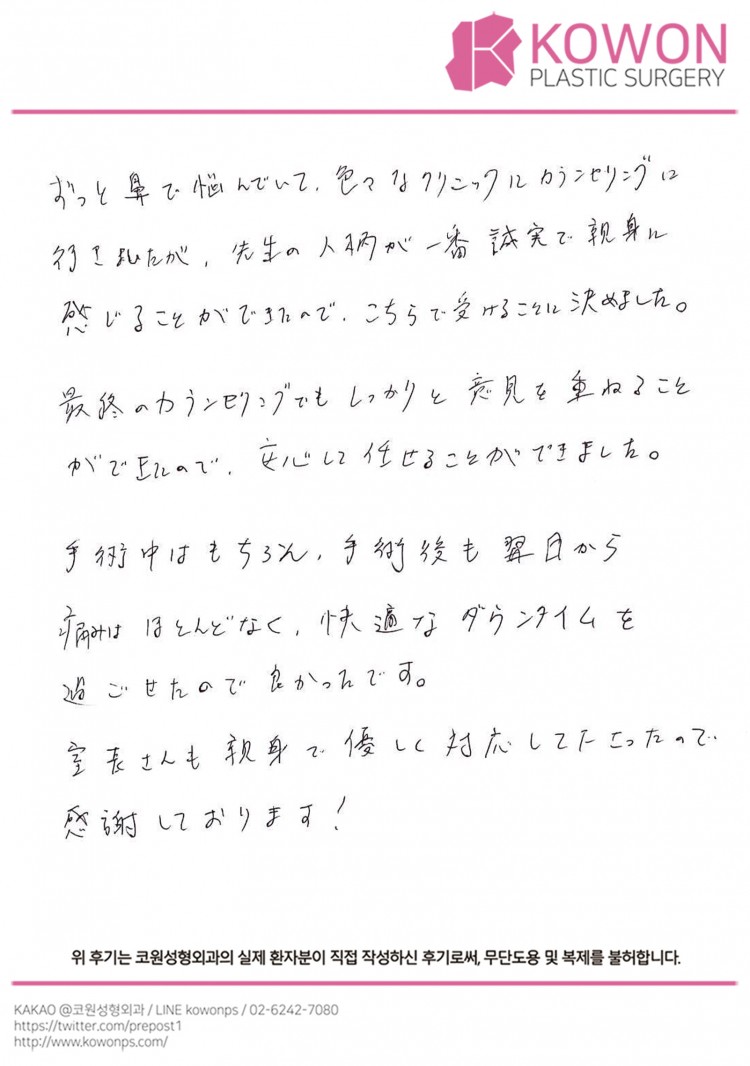 KOWON
PLASTIC SURGERY
ずっと鼻で悩んでいて、色々なクリニックにカウンセリングに
行きましたが、先生の人柄が一番誠実で親身に
感じることができたので、こちらで受けることに決めました。
最終のカウンセリングでもしっかりと意見を重ねること
ができたので、安心して任せることができました。
手術中はもちろん、手術後も翌日から
痛みはほとんどなく、快適なダウンタイムを
過ごせたので良かったです。
室長さんも親身で優しく対応して下さったので
感謝しております！
위 후기는 코원성형외과의 실제 환자분이 직접 작성하신 후기로써, 무단도용 및 복제를 불허합니다.
KAKAO @코원성형외과 / LINE kowonps / 02-6242-7080
https://twitter.com/prepost1
http://www.kowonps.com/